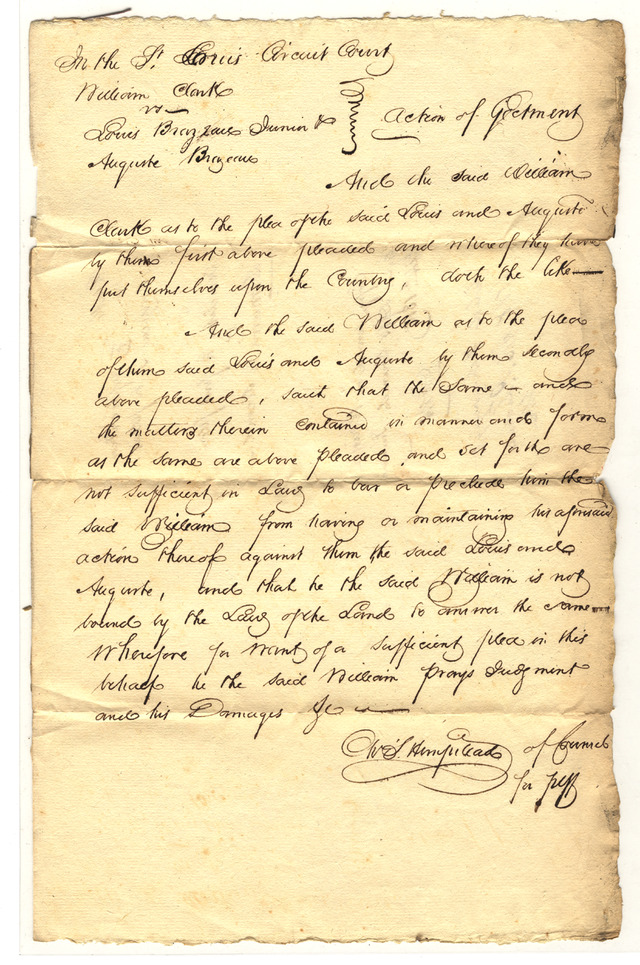 In the St Louis Circuit Court
William Clark
vs
Louis Brazeau Junior &
Auguste Brazeau
Action of Ejectment
And the said William
Clark as to the plea of the said Louis and Auguste
by them first above pleaded and whereof they have
put themselves upon the Country, doth the like
And the said William as to the plea
of them said Louis and Auguste by them secondly
above pleaded, saith that the same and
the matters therein contained in manner and form
as the same are above pleaded and set forth are
not sufficient in Law to bar or preclude him the
said William from having or maintaining his aforesaid
action thereof against them the said Louis and
Auguste, and that he the said William is not
bound by the Law of the Land to answer the same
Wherefore for want of a sufficient plea in this
behalf he the said William prays Judgment
and his Damages &c
Chs. S. Hempstead of Council
for plff